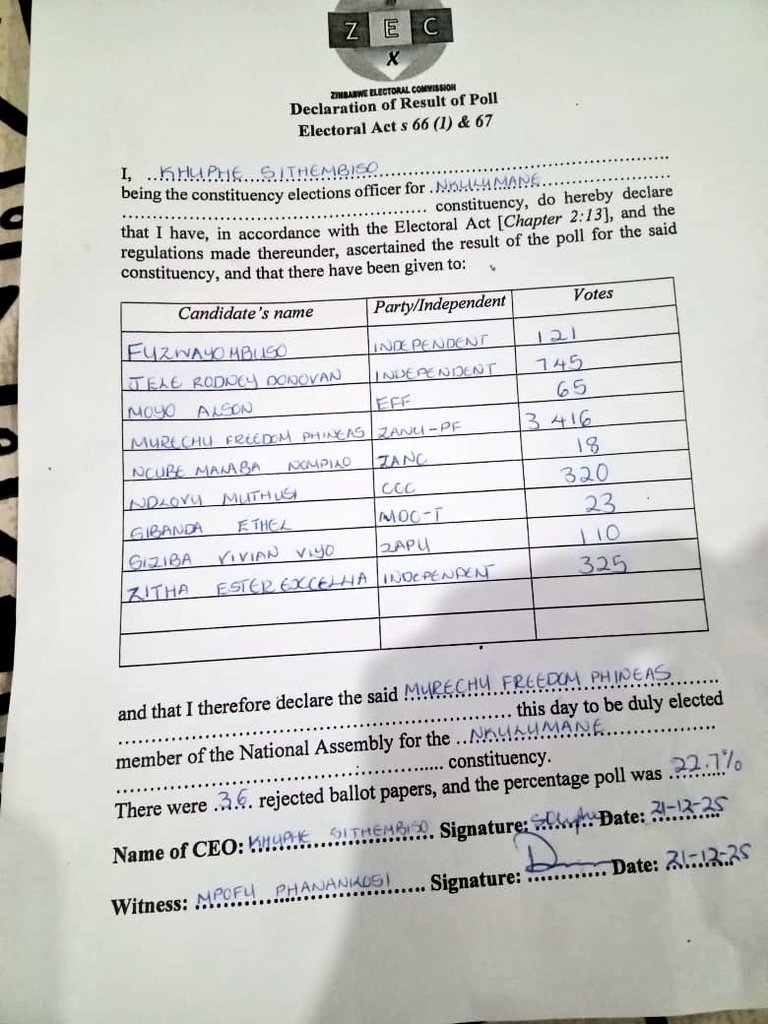 Z E C
X
ZIMBABWE ELECTORAL COMMISSION
Declaration of Result of Poll
Electoral Act s 66 (1) & 67
I, ..KHUPHE SITHEMBISO..............................
being the constituency elections officer for .NKULUMANE..................
.................................................. constituency, do hereby declare
that I have, in accordance with the Electoral Act [Chapter 2:13], and the
regulations made thereunder, ascertained the result of the poll for the said
constituency, and that there have been given to:
Candidate's name Party/Independent Votes
FUZWAYO MBUSO INDEPENDENT 121
JELE RODNEY DONOVAN INDEPENDENT 745
MOYO ALSON EFF 65
MURECHU FREEDOM PHINEAS ZANU-PF 3 416
NCUBE MALABA NOMPILO ZANC 18
NDLOVU MUTHUSI CCC 320
SIBANDA ETHEL MDC-T 23
SIZIBA VIVIAN VIYO ZAPU 110
ZITHA ESTER EXCELLIA INDEPENDENT 325
and that I therefore declare the said MURECHU FREEDOM PHINEAS.......
.................................................. this day to be duly elected
member of the National Assembly for the ..NKULUMANE..................
.................................................. constituency.
There were .36. rejected ballot papers, and the percentage poll was 22.7%
Name of CEO: KHUPHE SITHEMBISO Signature: ............ Date: 21-12-25
Witness: MPOFU PHANANKOSI ...... Signature: ............ Date: 21-12-25